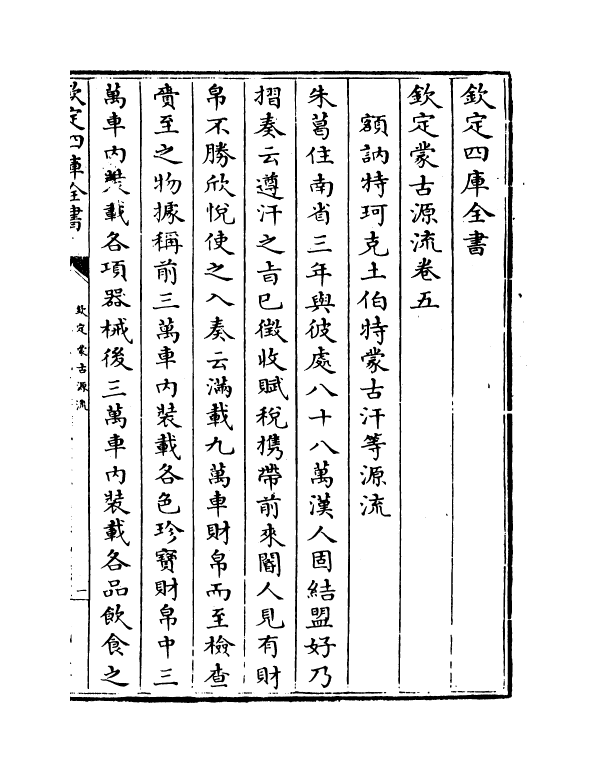 欽定四庫全書
欽定蒙古源流卷五
額訥特珂克土伯特蒙古汗等源流
朱葛住南省三年與彼處八十八萬漢人固結盟好乃
摺奏云遵汗之旨已徵收賦稅携帶前來閽人見有財
帛不勝欣悅使之入奏云滿載九萬車財帛而至檢查
賫至之物據稱前三萬車內裝載各色珍寶財帛中三
萬車內裝載各項器械後三萬車內裝載各品飲食之
欽定四庫全書
欽定蒙古源流
一